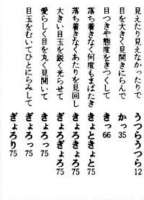 見えたり見えなかったりで うつらうつら 12
目を大きく見開きにらんで かっ 35
目つきや態度をきつくして きっ 66
落ち着きなく何度もまばたき きょときょと 75
落ち着きなくあたりを見回し きょろきょろ 75
大きい目玉を鋭く光らせて ぎょろぎょろ 75
愛らしく目を丸く見開いて きょろっ 75
目玉をむいてひとにらみして ぎょろり 75